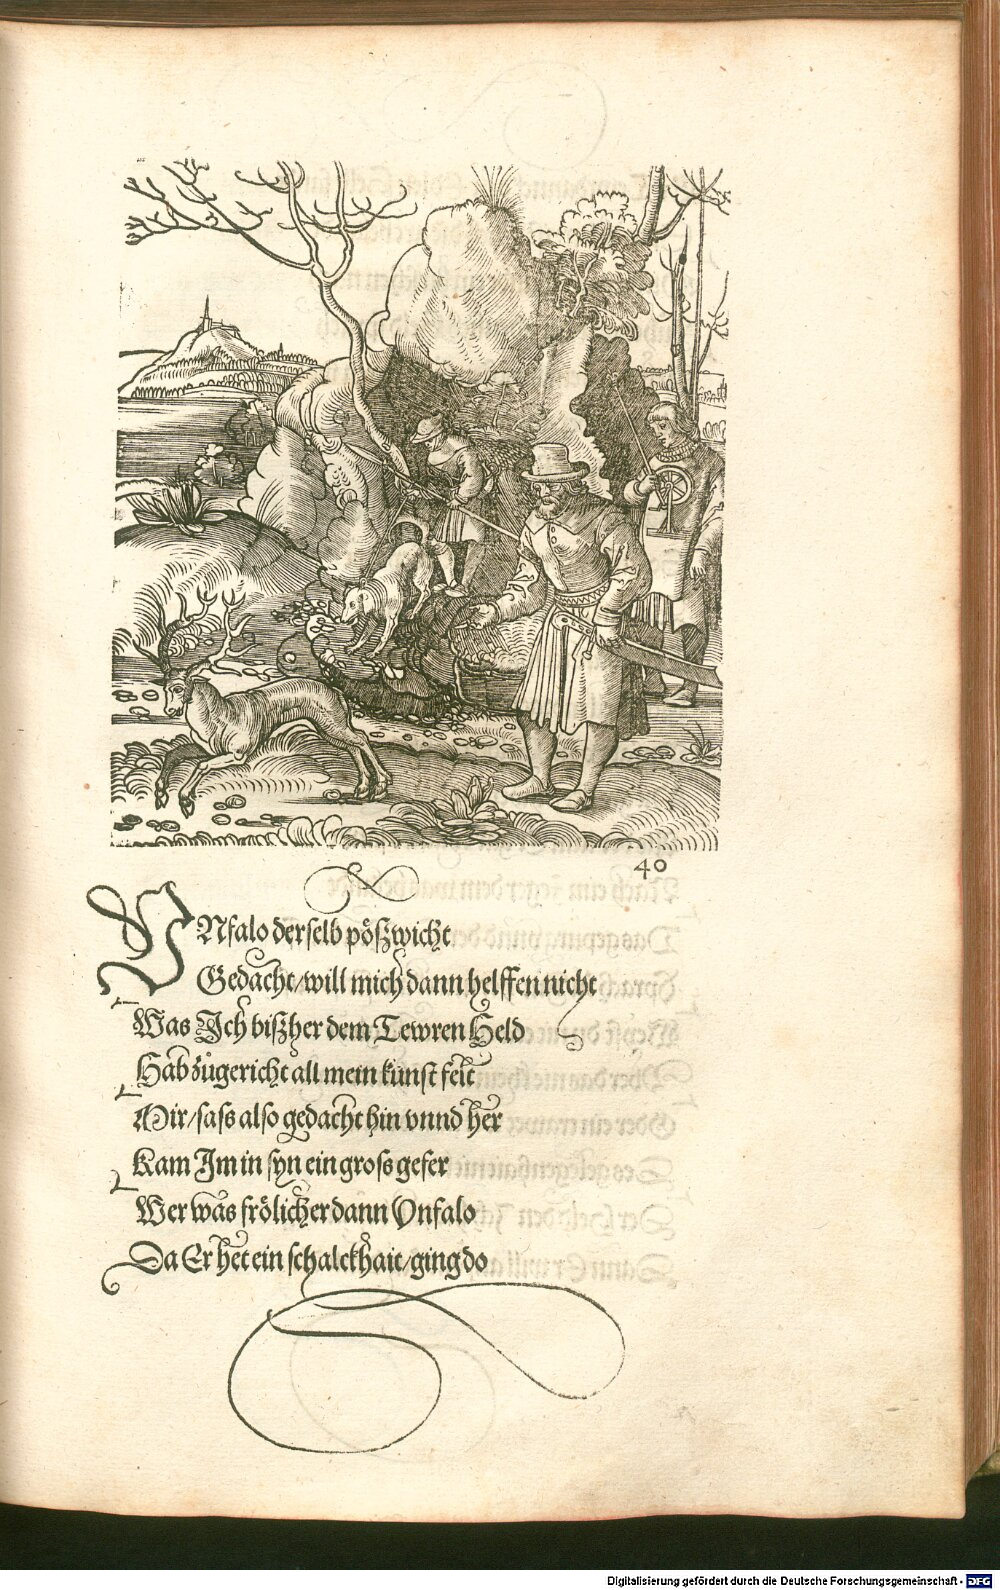 40
VNfalo derselb pößwicht
Gedacht/will mich dann helffen nicht
Was Ich bißher dem Tewren Held
Hab zůgericht all mein kunst felt
Mir/sass also gedacht hin vnnd her
Kam Im in syn ein gross gefer
Wer was frölicher dann Vnfalo
Da Er het ein schalckhait/ging do
Digitalisierung gefördert durch die Deutsche Forschungsgemeinschaft - DFG